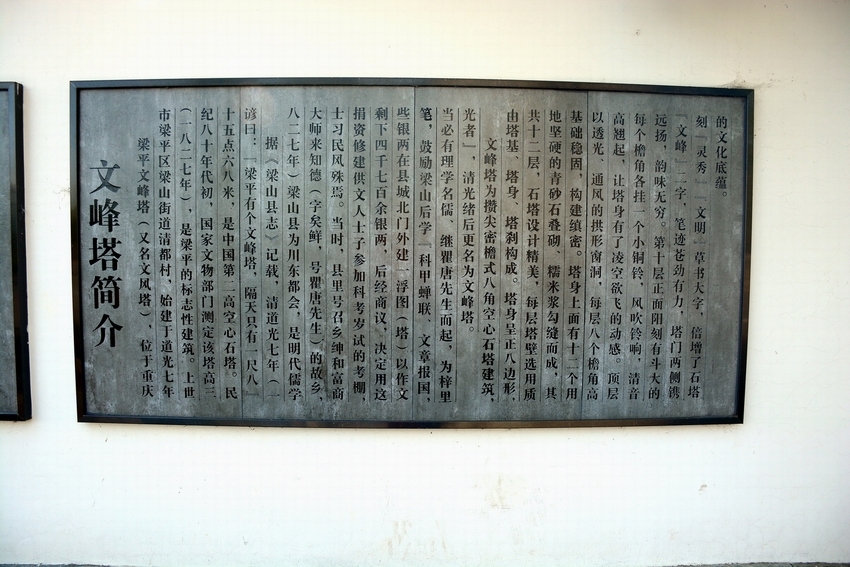 文峰塔简介
梁平文峰塔（又名文风塔），位于重庆
市梁平区梁山街道清都村，始建于道光七年
（一八二七年），是梁平的标志性建筑。上世
纪八十年代初，国家文物部门测定该塔高三
十五点六八米，是中国第二高空心石塔。民
谚曰：「梁平有个文峰塔，隔天只有一尺八」
据《梁山县志》记载，清道光七年（一
八二七年）梁山县为川东都会，是明代儒学
大师来知德（字矣鲜，号瞿唐先生）的故乡，
士习民风殊焉。当时，县里号召乡绅和富商
捐资修建供文人士子参加科考岁试的考棚，
剩下四千七百余银两，后经商议，决定用这
些银两在县城北门外建一浮图（塔）以作文
笔，鼓励梁山后学「科甲蝉联、文章报国，
当必有理学名儒、继瞿唐先生而起，为梓里
光者」，清光绪后更名为文峰塔。
文峰塔为攒尖密檐式八角空心石塔建筑，
由塔基、塔身、塔刹构成。塔身呈正八边形，
共十二层，石塔设计精美，每层塔壁选用质
地坚硬的青砂石叠砌、糯米浆勾缝而成，其
基础稳固，构建缜密。塔身上面有十二个用
以透光、通风的拱形窗洞，每层八个檐角高
高翘起，让塔身有了凌空欲飞的动感。顶层
每个檐角各挂一个小铜铃，风吹铃响，清音
远扬，韵味无穷。第十层正面阳刻有斗大的
「文峰」二字，笔迹苍劲有力，塔门两侧镌
刻「灵秀」「文明」草书大字，倍增了石塔
的文化底蕴。